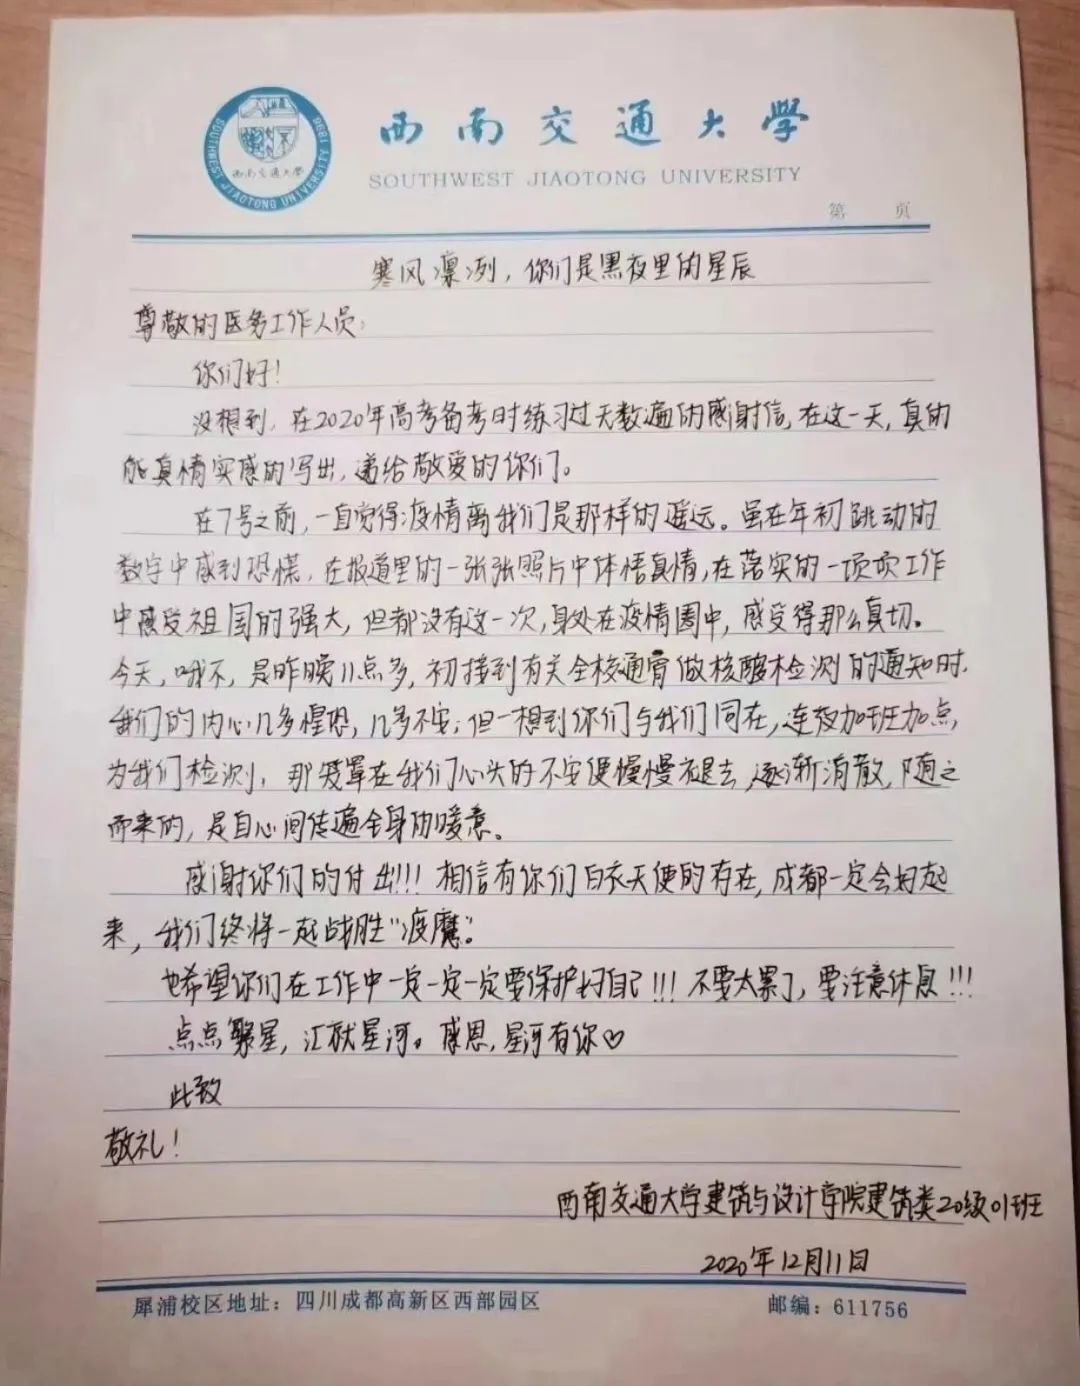 西南交通大學
SOUTHWEST JIAOTONG UNIVERSITY
SOUTHWEST JIAOTONG UNIVERSITY 1896
西南交通大學
第 页
寒风凛冽，你们是黑夜里的星辰
尊敬的医务工作人员：
你们好！
没想到，在2020年高考备考时练习过无数遍的感谢信，在这一天，真的
能真情实感的写出，递给敬爱的你们。
在7号之前，一直觉得疫情离我们是那样的遥远。虽在年初跳动的
数字中感到恐慌，在报道里的一张张照片中体悟真情，在落实的一项项工作
中感受祖国的强大，但都没有这一次，身处在疫情圈中，感受得那么真切。
今天，哦不，是昨晚11点多，初接到有关全校通宵做核酸检测的通知时，
我们的内心几多惶恐，几多不安；但一想到你们与我们同在，连夜加班加点，
为我们检测，那笼罩在我们心头的不安便慢慢褪去，逐渐消散，随之
而来的，是自心间传遍全身的暖意。
感谢你们的付出!!! 相信有你们白衣天使的存在，成都一定会好起
来，我们终将一起战胜“疫魔”。
也希望你们在工作中一定一定一定要保护好自己!!! 不要太累了，要注意休息!!!
点点繁星，汇就星河。感恩，星河有你♡
此致
敬礼！
西南交通大学建筑与设计学院建筑类20级01班
2020年12月11日
犀浦校区地址：四川成都高新区西部园区 邮编：611756